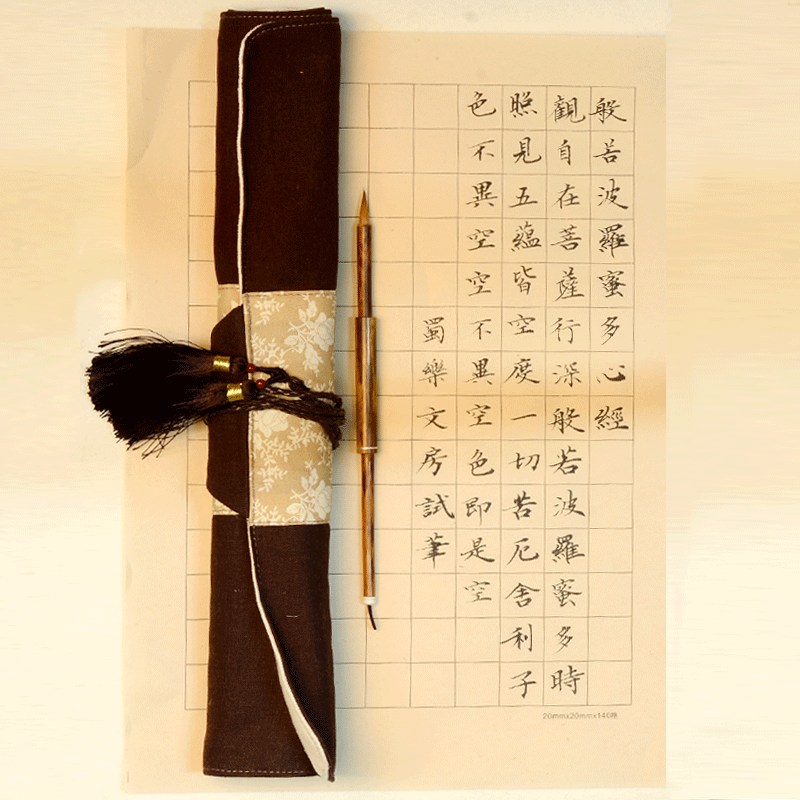 般若波羅蜜多心經
觀自在菩薩行深般若波羅蜜多時
照見五蘊皆空度一切苦厄舍利子
色不異空空不異空色即是空
蜀樂文房試筆
20mmx20mmx140格